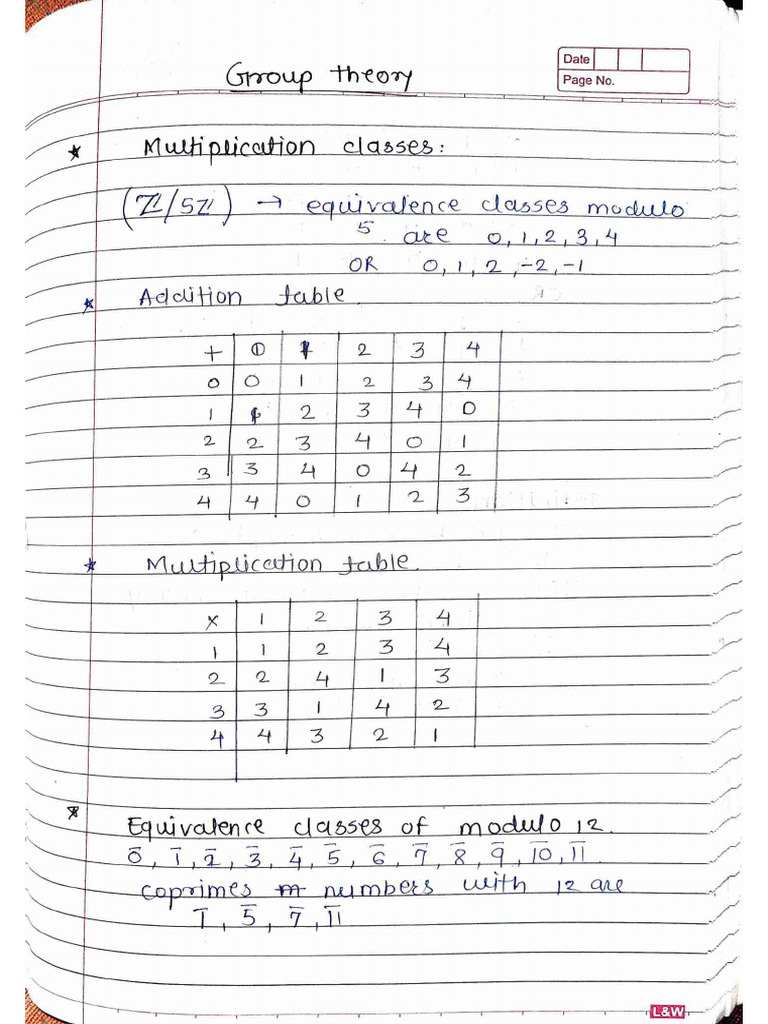 Date
Page No.
Group theory
* Multiplication classes:
(ℤ/5ℤ) → equivalence classes modulo
5 are 0, 1, 2, 3, 4
OR 0, 1, 2, -2, -1
* Addition table
+ 0 1 2 3 4
0 0 1 2 3 4
1 1 2 3 4 0
2 2 3 4 0 1
3 3 4 0 4 2
4 4 0 1 2 3
* Multiplication table.
× 1 2 3 4
1 1 2 3 4
2 2 4 1 3
3 3 1 4 2
4 4 3 2 1
* Equivalence classes of modulo 12.
0̅, 1̅, 2̅, 3̅, 4̅, 5̅, 6̅, 7̅, 8̅, 9̅, 1̅0̅, 1̅1̅.
coprimes numbers with 12 are
1̅, 5̅, 7̅, 1̅1̅
L&W